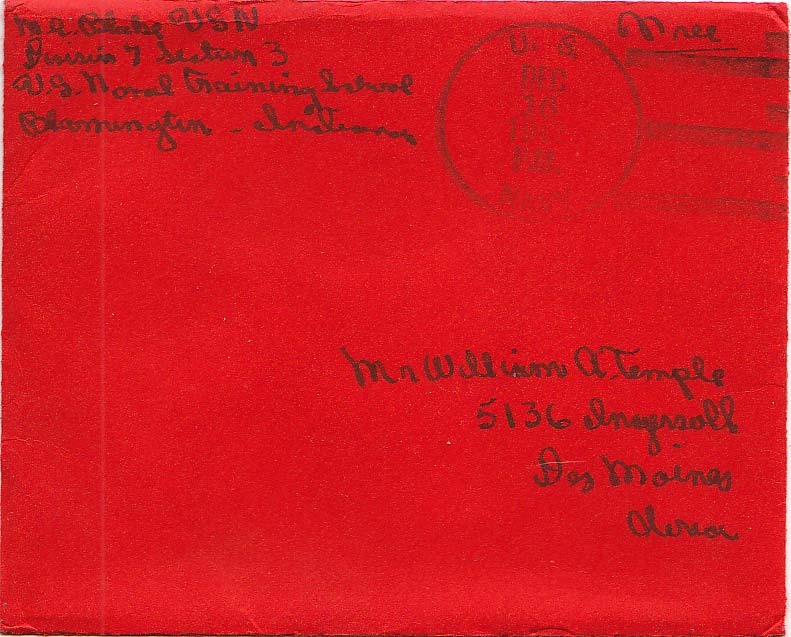 M.A. Blake USN
Division 7 Section 3
U.S. Naval Training School
Bloomington - Indiana
Free
U. S.
DEC
16
P.M.
NAVY
Mr William A. Temple
5136 Ingersoll
Des Moines
Iowa